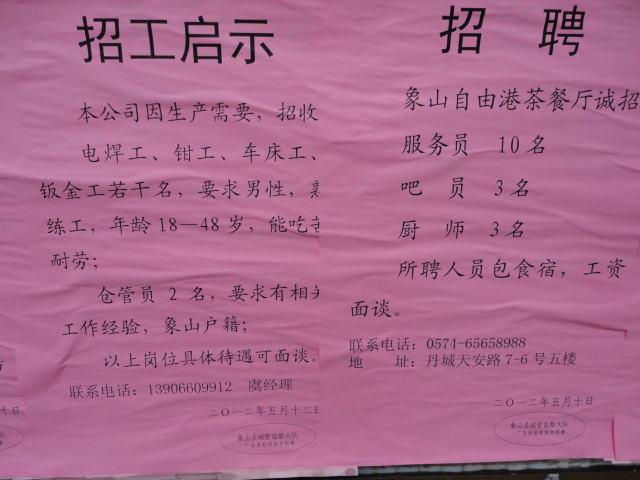 招工启示
本公司因生产需要，招收
电焊工、钳工、车床工、
钣金工若干名，要求男性，熟
练工，年龄18—48岁，能吃苦
耐劳；
仓管员2名，要求有相关
工作经验，象山户籍；
以上岗位具体待遇可面谈。
联系电话：13906609912 虞经理
二〇一二年五月十二日
象山县城管监察大队
招 聘
象山自由港茶餐厅诚招
服务员 10名
吧 员 3名
厨 师 3名
所聘人员包食宿，工资
面谈。
联系电话：0574-65658988
地 址：丹城天安路7-6号五楼
二〇一二年五月十日
象山县城管监察大队
十日